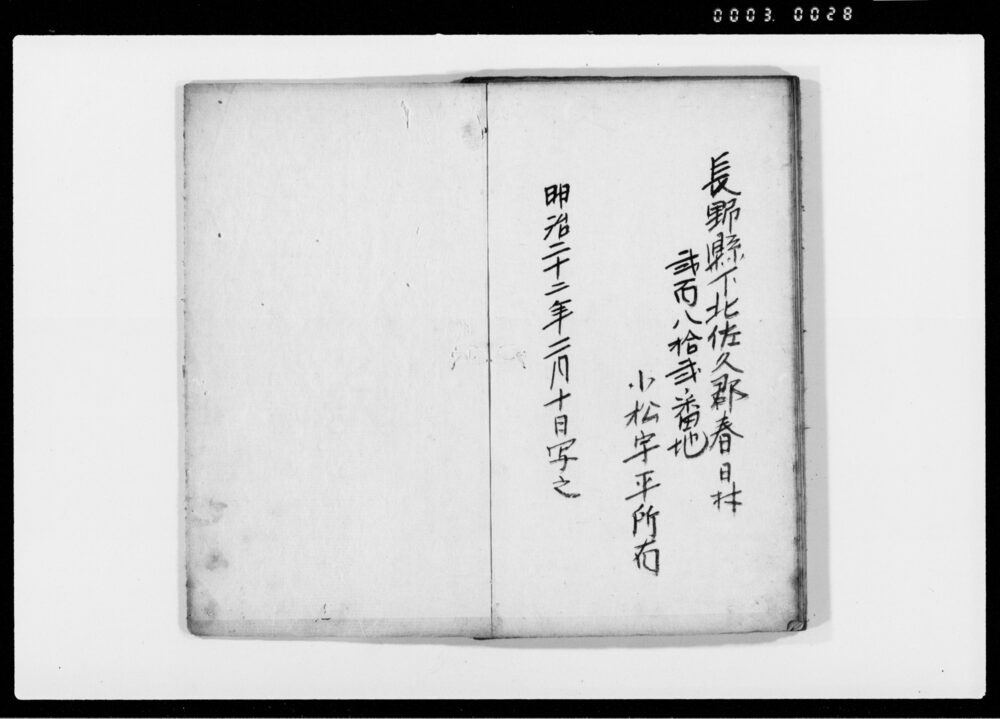 0003. 0028
長野縣下北佐久郡春日村
貳百八拾貳番地
小松宇平所有
明治二十二年二月十日写之